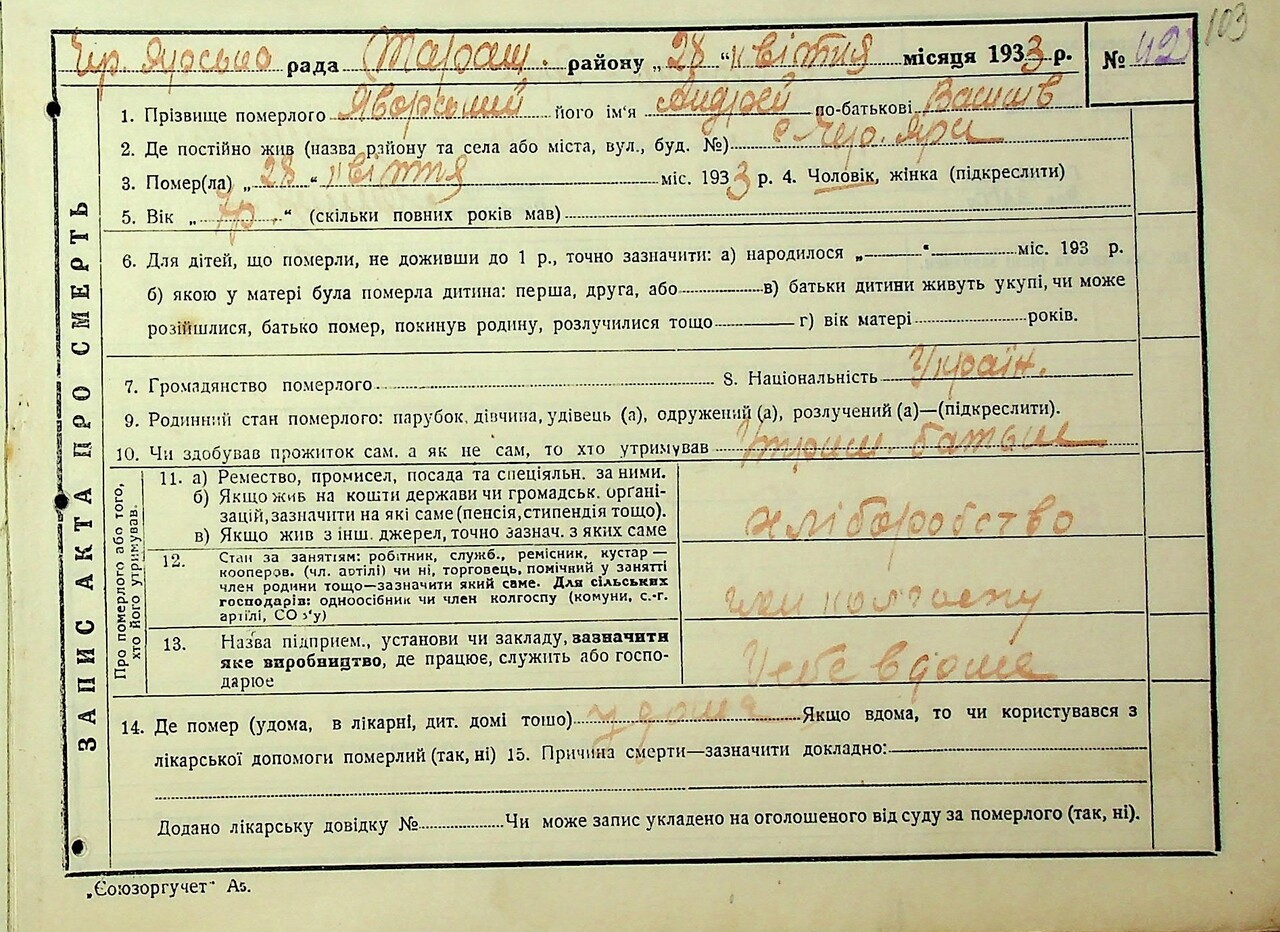 103
Чер. Ярська рада Таращ. району „28 “ квітня місяця 1933 р. № 42
1. Прізвище померлого Яворський його ім'я Андрей по-батькові Васил
2. Де постійно жив (назва району та села або міста, вул., буд. №) с Чер. Яри
3. Помер(ла) „ 28 “ квітня міс. 1933 р. 4. Чоловік, жінка (підкреслити)
5. Вік „ 7р. “ (скільки повних років мав)
6. Для дітей, що померли, не доживши до 1 р., точно зазначити: а) народилося „ “ міс. 193 р.
б) якою у матері була померла дитина: перша, друга, або в) батьки дитини живуть укупі, чи може
розійшлися, батько помер, покинув родину, розлучилися тощо г) вік матері років.
7. Громадянство померлого 8. Національність Україн.
9. Родинний стан померлого: парубок, дівчина, удівець (а), одружений (а), розлучений (а)—(підкреслити).
10. Чи здобував прожиток сам. а як не сам, то хто утримував Утрим. батьки
ЗАПИС АКТА ПРО СМЕРТЬ
Про померлого або того,
хто його утримував.
11. а) Ремество, промисел, посада та спеціяльн. за ними.
б) Якщо жив на кошти держави чи громадськ. орґані-
зацій, зазначити на які саме (пенсія, стипендія тощо).
в) Якщо жив з інш. джерел, точно зазнач. з яких саме
хліборобство
12. Стан за занятіям: робітник, служб., ремісник, кустар —
кооперов. (чл. артілі) чи ні, торговець, помічний у занятті
член родини тощо—зазначити який саме. Для сільських
господарів: одноосібник чи член колгоспу (комуни, с.-г.
артілі, СОз'у)
член колгоспу
13. Назва підприєм., установи чи закладу, зазначити
яке виробництво, де працює, служить або госпо-
дарює
У себе вдома
14. Де помер (удома, в лікарні, дит. домі тошо) удома Якщо вдома, то чи користувався з
лікарської допомоги померлий (так, ні) 15. Причина смерти—зазначити докладно:
Додано лікарську довідку № Чи може запис укладено на оголошеного від суду за померлого (так, ні).
„Союзоргучет“ Аз.